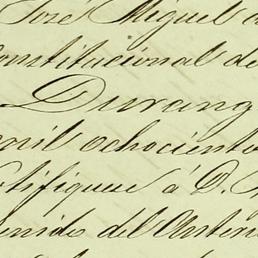 José Miguel
onstitucional de
Durang
mil ochocient
tifiquese á D.
enido del Anteri